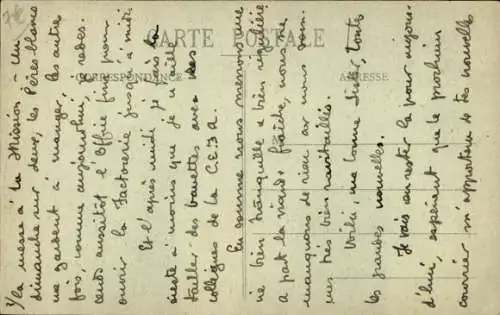 CARTE POSTALE
CORRESPONDANCE
ADRESSE
3/ la messe à la Mission - Un
dimanche sur deux, les Pères blancs
me gardent à manger, les autres
fois, comme aujourd'hui, je redes-
cends aussitôt l'Office fini pour
ouvrir la Factorerie jusqu'à midi
Et l'après midi je fais la
sieste à moins que je n'aille
tailler des bavettes avec des
collègues de la C.E.D.A.
En somme nous menons une
vie bien tranquille et bien régulière
à part la viande fraîche, nous ne
manquons de rien car nous som-
mes très bien ravitaillés.
Voilà, ma bonne Sister, toutes
les grandes nouvelles.
Je vais en rester là pour aujour-
d'hui, espérant que le prochain
courrier m'apportera de tes nouvelles